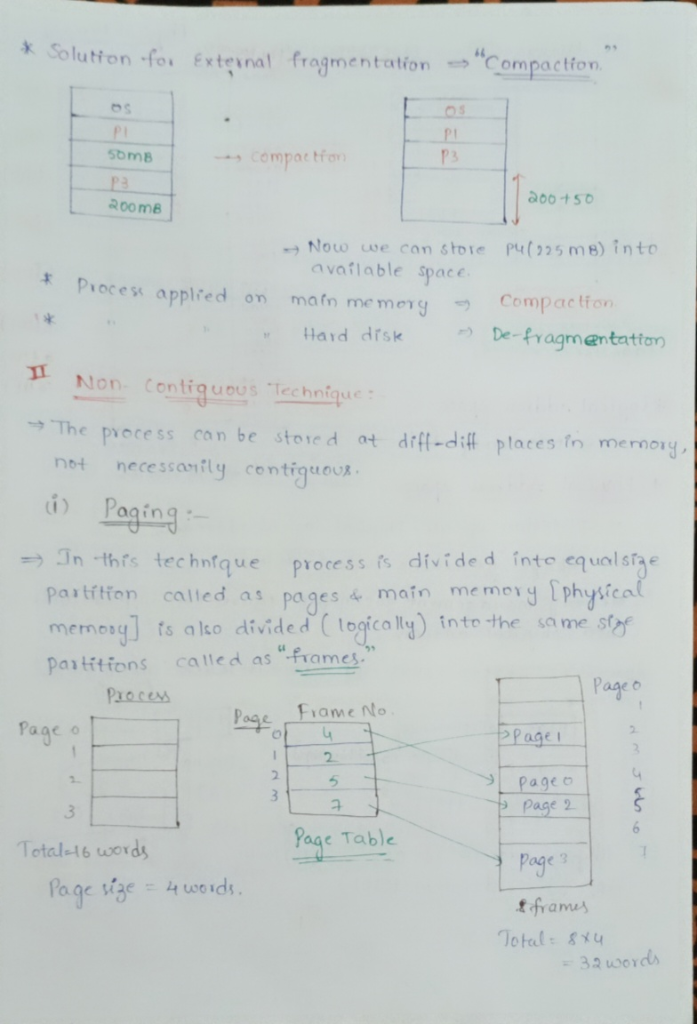 * Solution for External fragmentation ⇒ "Compaction."
OS
P1
50MB
P3
200MB
→ compaction
OS
P1
P3
200+50
→ Now we can store P4(225MB) into
available space.
* Process applied on main memory ⇒ Compaction
* " " " Hard disk ⇒ De-fragmentation
II Non-Contiguous Technique:-
→ The process can be stored at diff-diff places in memory,
not necessarily contiguous.
(i) Paging :-
⇒ In this technique process is divided into equalsize
partition called as pages & main memory [physical
memory] is also divided (logically) into the same size
partitions called as "frames."
Process
Page 0
1
2
3
Total=16 words
Page size = 4 words.
Page Frame No.
0 4
1 2
2 5
3 7
Page Table
Page 0
1
Page 1 2
3
page 0 4
Page 2 5
6
Page 3 7
8 frames
Total = 8×4
= 32 words